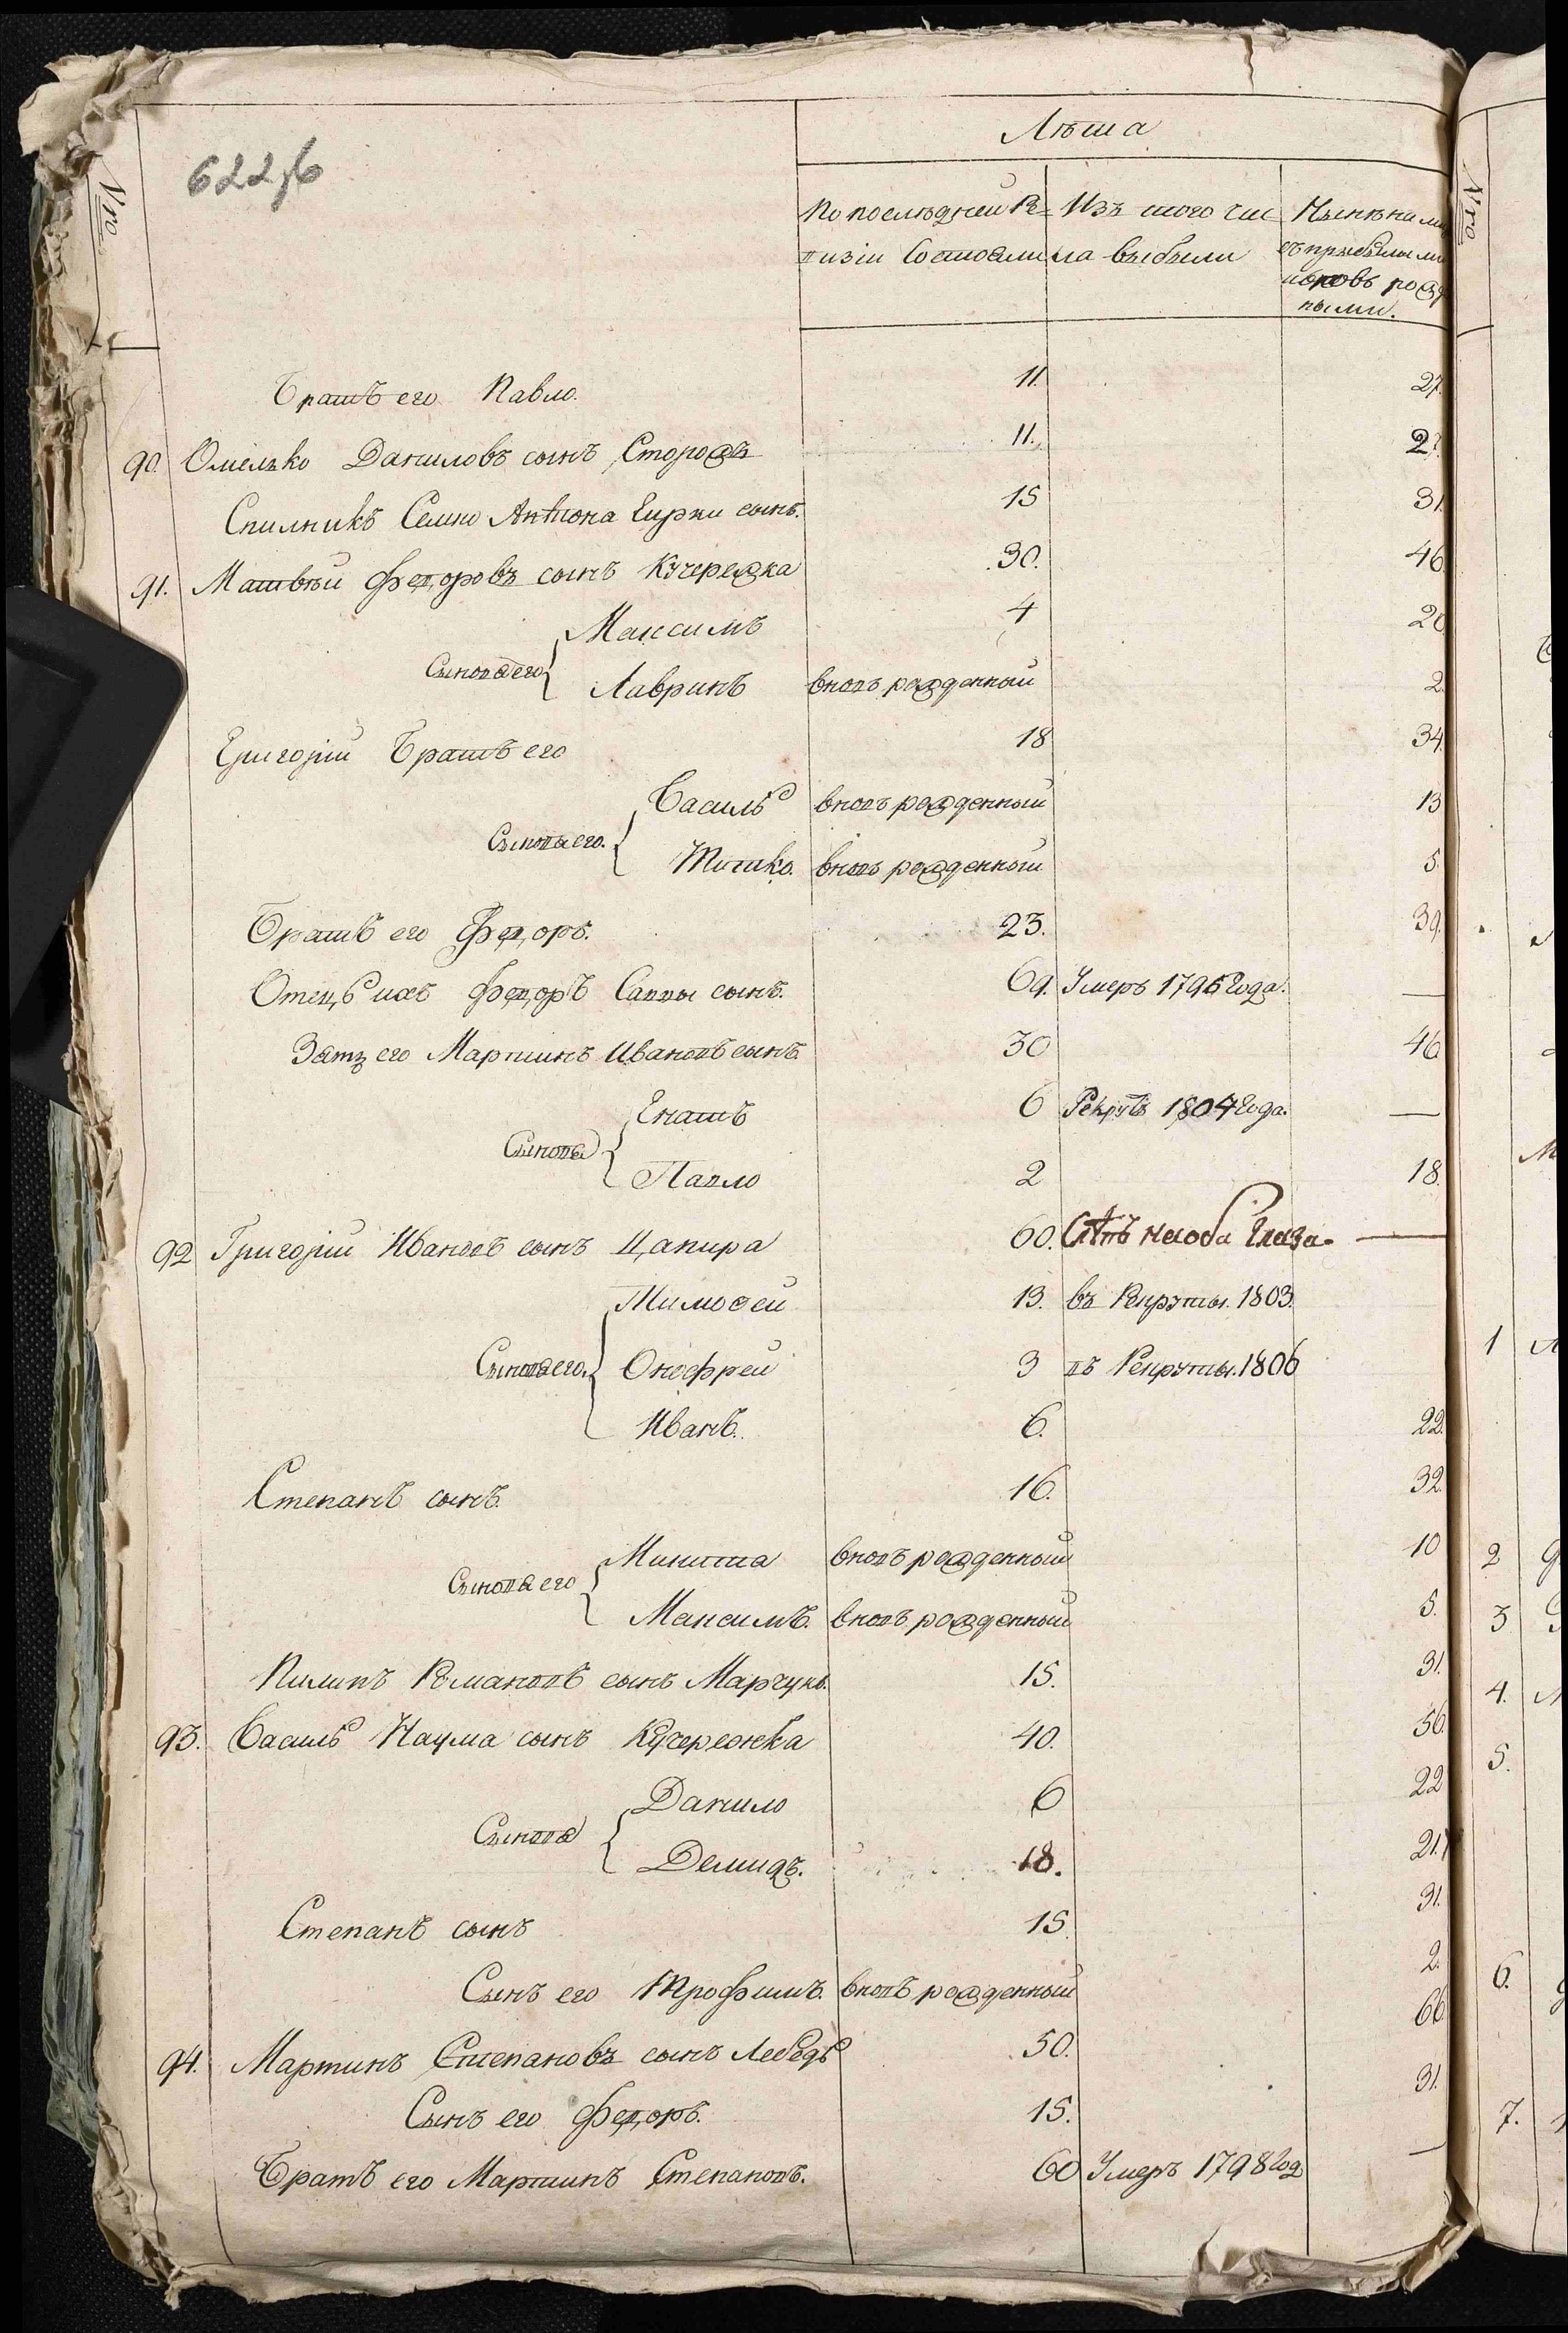 622/б
Nro
Лѣта
По послѣдней Ре=
визіи Состояли
Изъ того чис
ла выбыли
Нынѣ на ли
съ прибылыми
и вновь рожд
ными.
Братъ его Павло. 11. 27.
90. Омелько Даниловъ сынъ Сторожъ 11. 27.
Спилникъ Семно Антона сынъ. 15 31.
91. Матвѣй Федоровъ сынъ Кучережка 30. 46
Сыновья его Максимъ 4 20
Лавринъ вновь рожденный 2.
Григорій Братъ его 18 34.
Сыновья его. Василь вновь рожденный 13
Тишко. вновь рожденный 5.
Братъ его Федоръ. 23. 39.
Отецъ ихъ Федоръ Саввы сынъ. 69. Умеръ 1796 Года. —
Зять его Мартинъ Ивановъ сынъ 30 46
Сыновья Гнатъ 6 Рекрутъ 1804 Года. —
Павло 2 18.
92 Григорій Ивановъ сынъ Цапира 60. Слѣпъ на оба Глаза. —
Сыновья его. Тимофей 13. въ Рекруты. 1803.
Онофрей 3 въ Рекруты. 1806
Иванъ. 6. 22.
Степанъ сынъ. 16. 32.
Сыновья его Микита вновь рожденный 10
Максимъ. вновь рожденный 5.
Пилипъ Романовъ сынъ Марчукъ. 15. 31.
93. Василь Наума сынъ Кучережка 40. 56.
Сыновья Данило 6 22
Демидъ. 18. 21.
Степанъ сынъ 15. 31.
Сынъ его Трофимъ. вновь рожденный 2.
94. Мартинъ Степановъ сынъ Лебедь 50. 66.
Сынъ его Федоръ. 15. 31.
Братъ его Мартинъ Степановъ. 60 Умеръ 1798 Год —
Nro
1
2
3
4.
5.
6.
7.